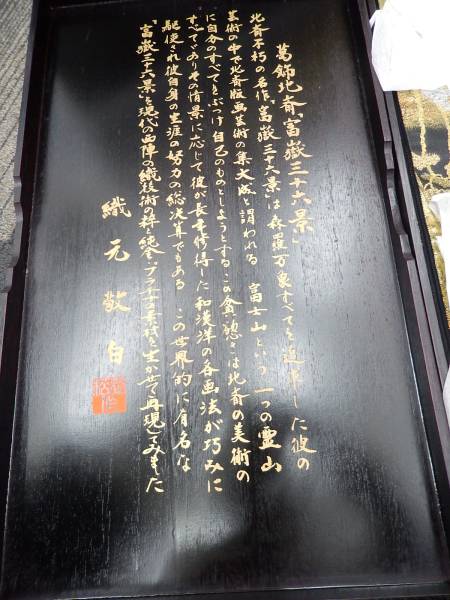 葛飾北斎「富嶽三十六景」
北斎不朽の名作“富嶽三十六景”は森羅万象すべてを追求した彼の
芸術の中で北斎版画芸術の集大成と謂われる 富士山という一つの霊山
に自分のすべてをぶつけ自己のものとしようとするこの貪慾さは北斎の美術の
すべてでありその情景に応じて彼が長年修得した和漢洋の各画法が巧みに
駆使され彼自身の生涯の努力の総決算でもある この世界的に有名な
“富嶽三十六景”を現代の西陣の織技術の粋と純金、プラチナ素材を生かせて再現してみました
織元敬白